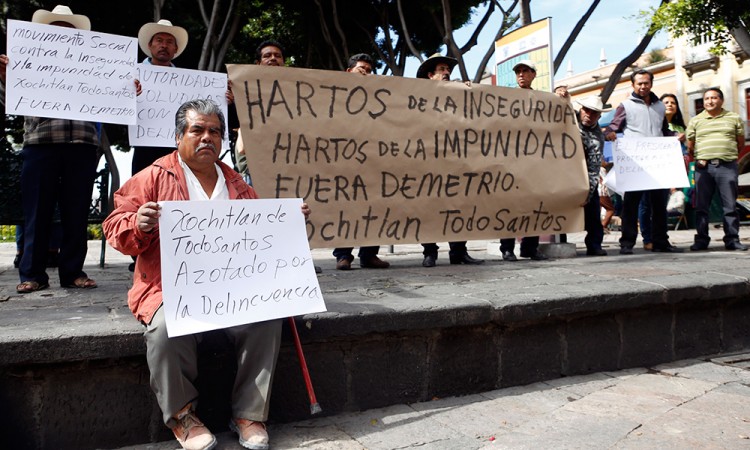 movimiento Social
contra la inseguridad
y la impunidad de
Xochitlan TodoSantos
FUERA DEMETRIO
AUTORIDADES
SOLUCI
CON
DELIN
HARTOS DE LA INSEGURIDA
HARTOS DE LA IMPUNIDAD
FUERA DEMETRIO.
Xochitlan TodoSantos
Xochitlan de
TodoSantos
Azotado por
la Delincuencia
EL PRESIDE